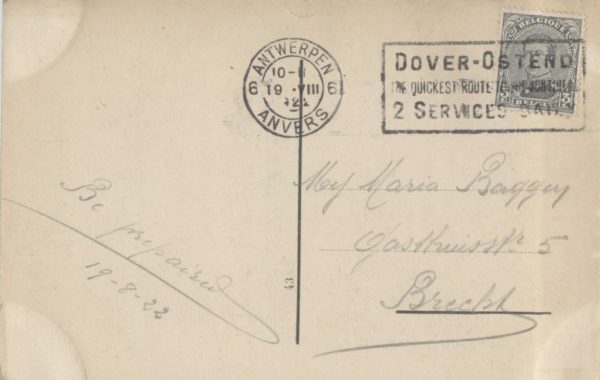 ANTWERPEN
10-
6 19 VIII 6
1922
ANVERS
DOVER-OSTEND
THE QUICKEST ROUTE TO THE CONTINENT
2 SERVICES DAILY
BELGIQUE
3 3
Be prepaired
19-8-22
43
Mej Maria Baggen
Gasthuisstr 5
Brecht